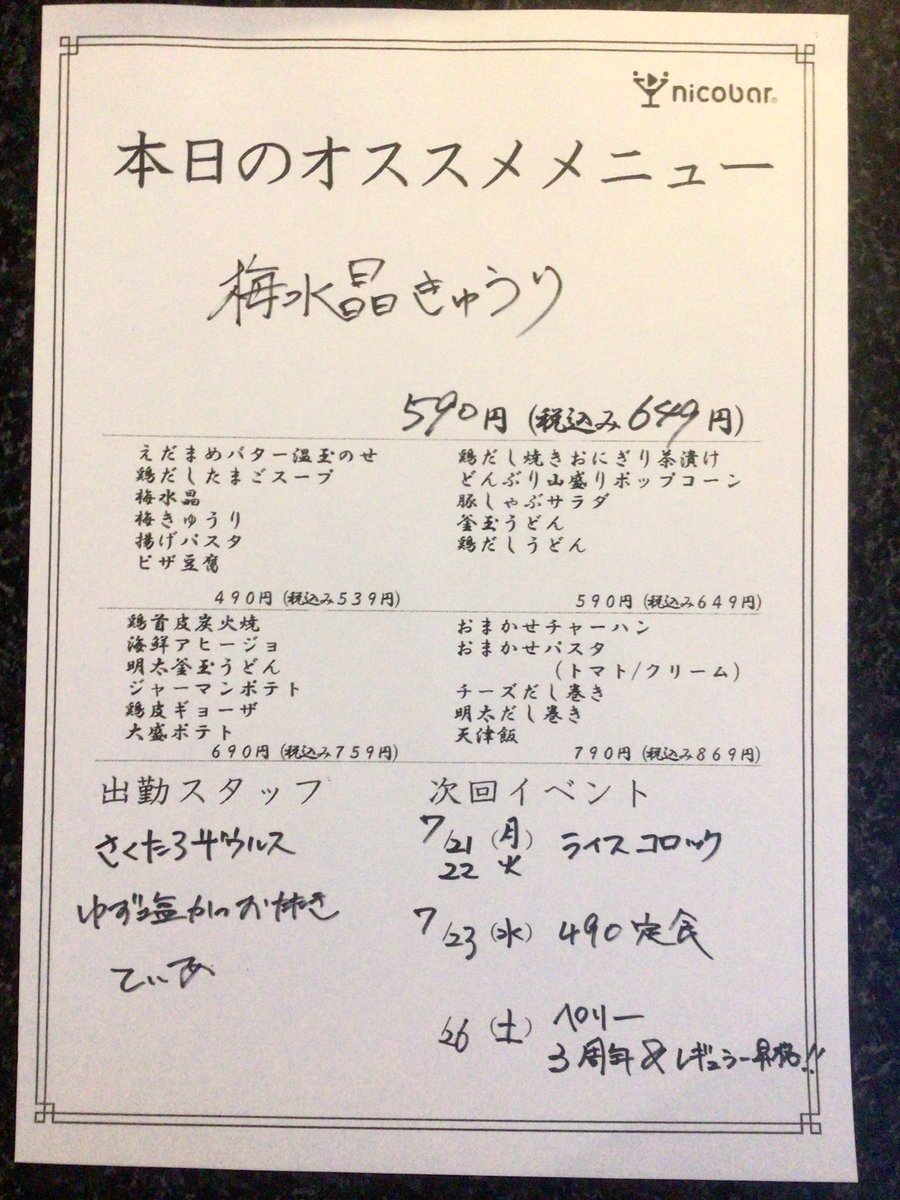 nicobar
本日のオススメメニュー
梅水晶きゅうり
590円 (税込み649円)
えだまめバター温玉のせ
鶏だしたまごスープ
梅水晶
梅きゅうり
揚げパスタ
ピザ豆腐
490円 (税込み539円)
鶏だし焼きおにぎり茶漬け
どんぶり山盛りポップコーン
豚しゃぶサラダ
釜玉うどん
鶏だしうどん
590円 (税込み649円)
鶏首皮炭火焼
海鮮アヒージョ
明太釜玉うどん
ジャーマンポテト
鶏皮ギョーザ
大盛ポテト
690円 (税込み759円)
おまかせチャーハン
おまかせパスタ
(トマト/クリーム)
チーズだし巻き
明太だし巻き
天津飯
790円 (税込み869円)
出勤スタッフ
さくたろザウルス
ゆず塩かつおたたき
てぃあ
次回イベント
7/21 (月) ライスコロック
22 火
7/23 (水) 490定食
26 (土) ペリー
3周年&レギュラー昇格!!